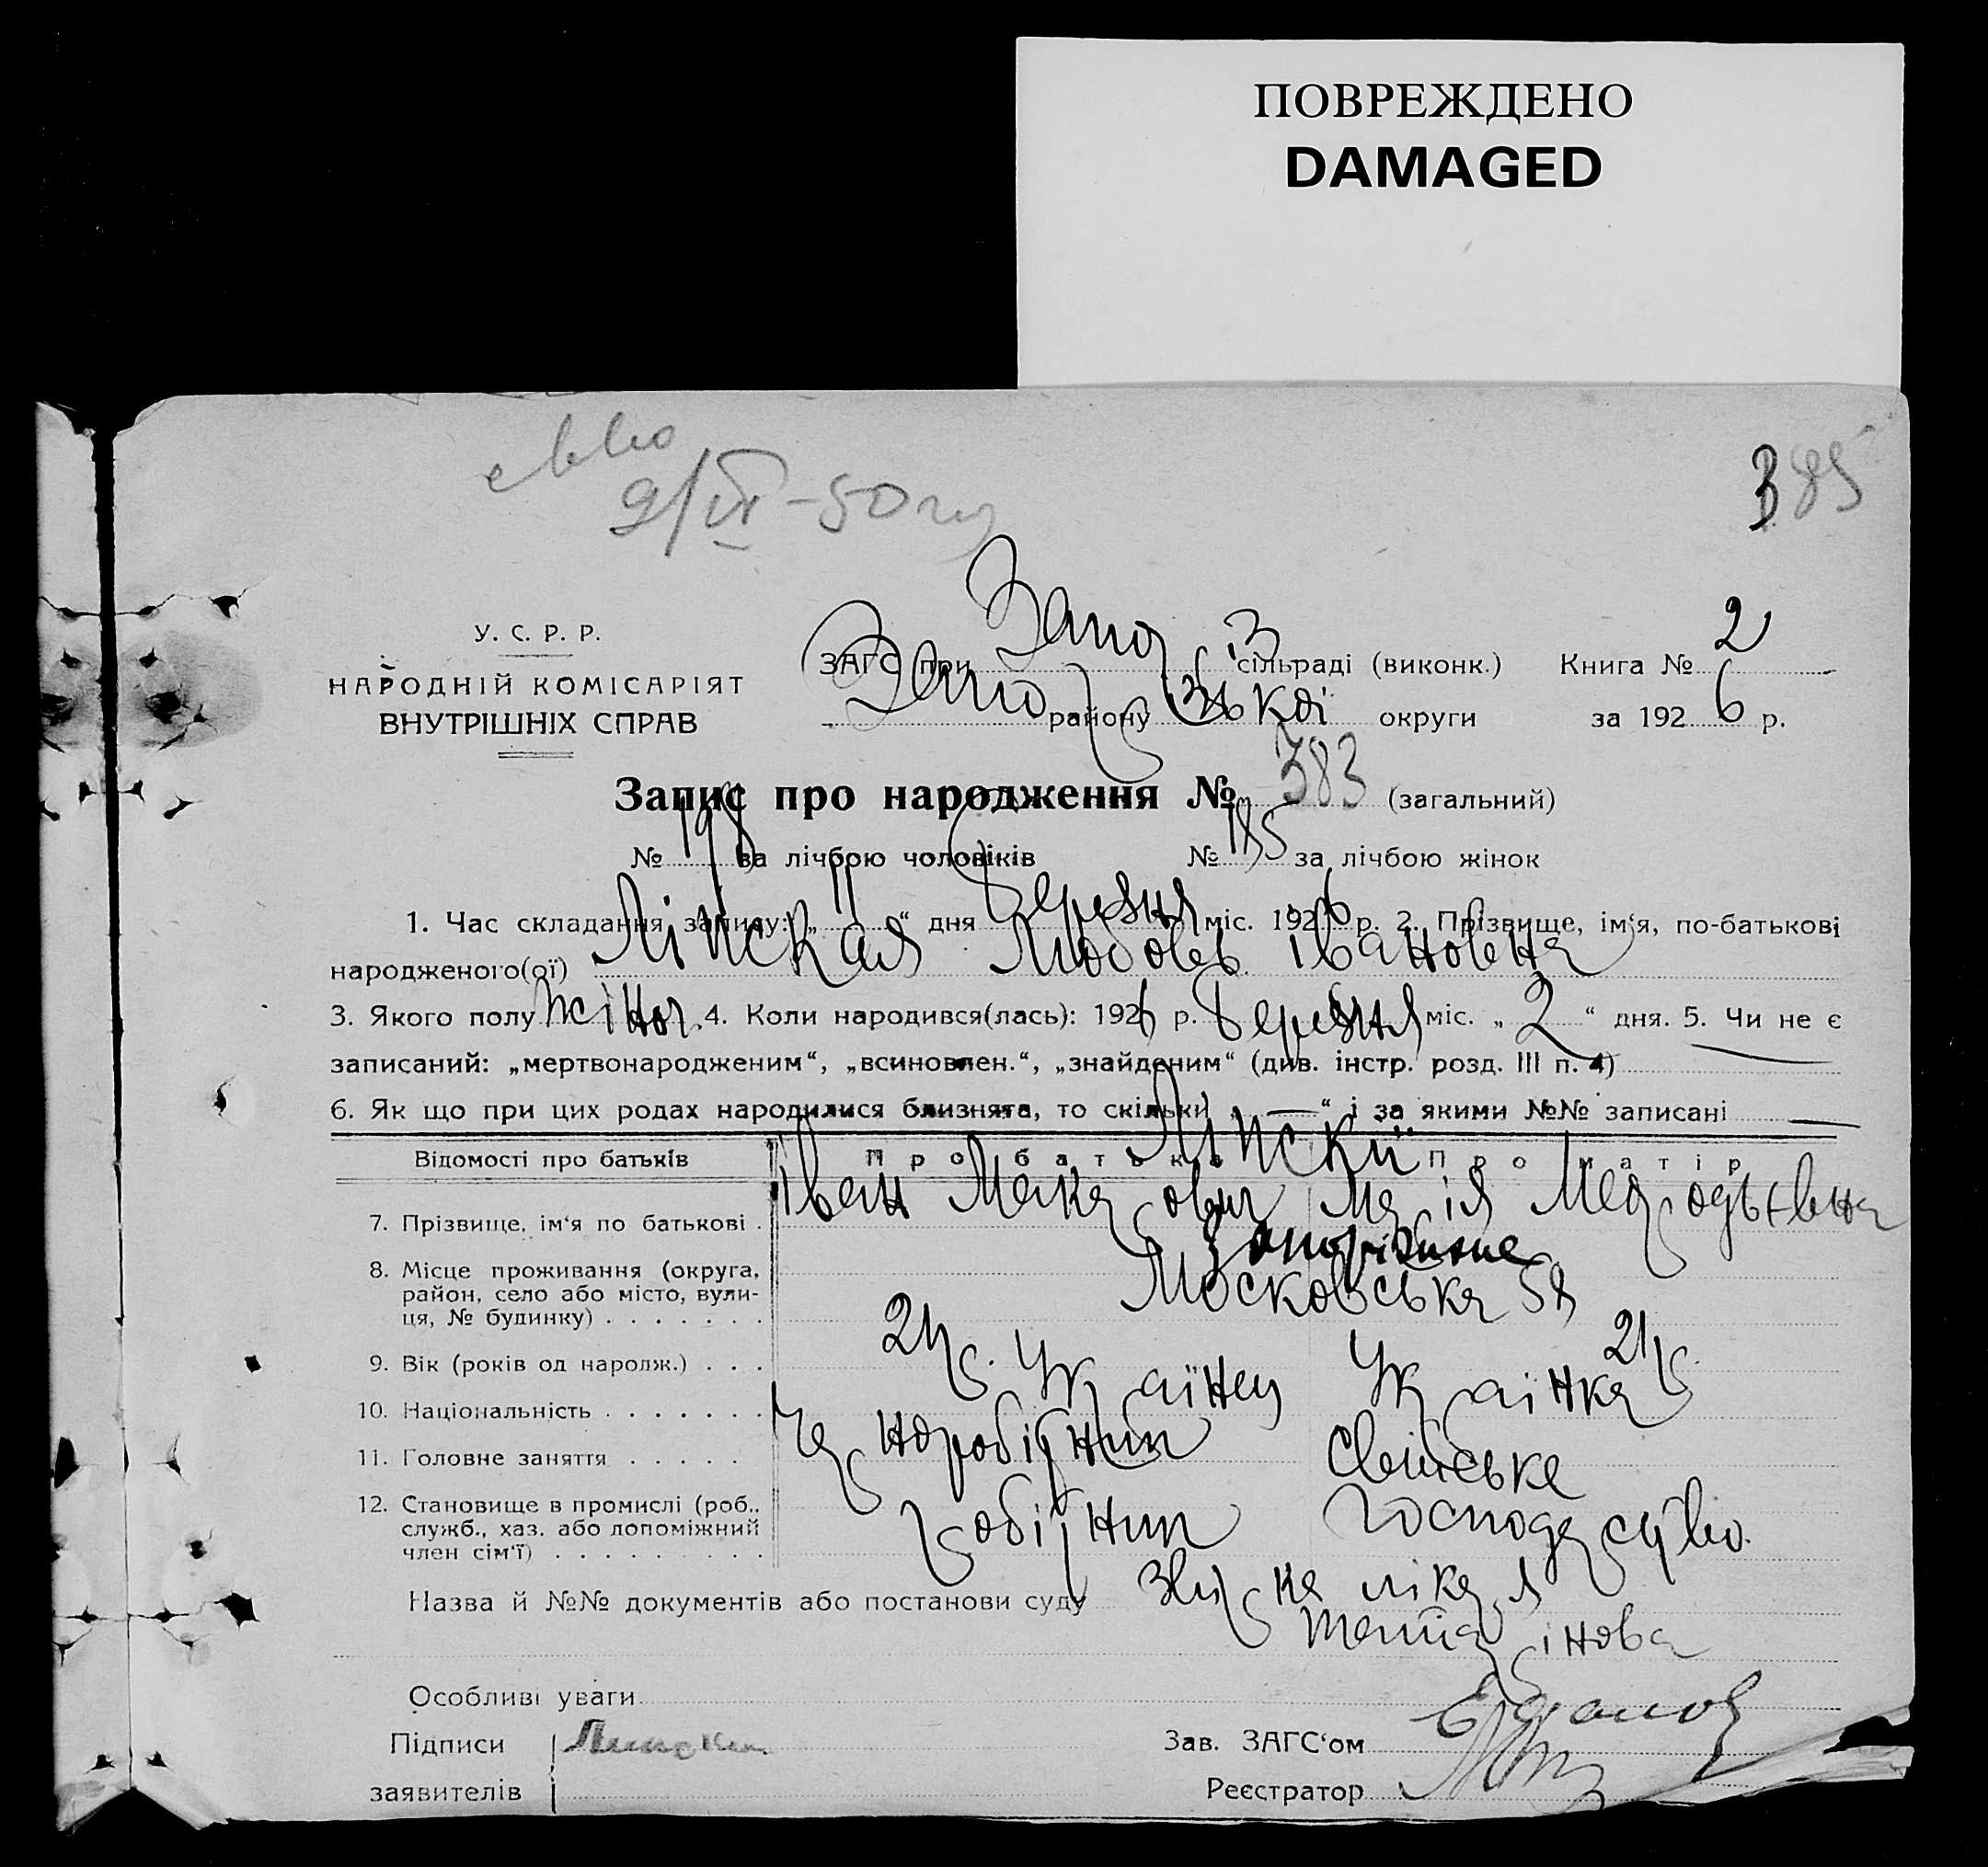 ПОВРЕЖДЕНО
DAMAGED
385
9/IV-50
У. С. Р. Р.
НАРОДНІЙ КОМІСАРІЯТ
ВНУТРІШНІХ СПРАВ
ЗАГС при Запоріз сільраді (виконк.) Книга № 2
Запоріз району ізької округи за 1926 р.
Запис про народження № 383 (загальний)
№ 198 за лічбою чоловіків № 185 за лічбою жінок
1. Час складання запису: „11“ дня Березня міс. 1926 р. 2. Прізвище, ім‘я, по-батькові
народженого(ої) Ліпская Любовь Івановна
3. Якого полу жіноч. 4. Коли народився(лась): 1926 р. Березня міс. „2“ дня. 5. Чи не є
записаний: „мертвонародженим“, „всиновлен.“, „знайденим“ (див. інстр. розд. III п. 4) —
6. Як що при цих родах народилися близнята, то скільки „—“ і за якими №№ записані —
Відомості про батьків Про батька Про матір
Ліпскій
7. Прізвище, ім‘я по батькові . Іван Макарович Марія
8. Місце проживання (округа, район, село або місто, вулиця, № будинку) . . . . . . . Запоріжжя
Московська 58
9. Вік (років од народж.) . . . 21р. 21р.
10. Національність . . . . . . . Українец Українка
11. Головне заняття . . . . . Черноробітник Свійське
12. Становище в промислі (роб., служб., хаз. або допоміжний член сім‘ї) . . . . . . . . . робітник господарство.
Назва й №№ документів або постанови суду Звірка лікаря
Особливі уваги
Підписи Липски
заявителів
Зав. ЗАГС‘ом
Реєстратор